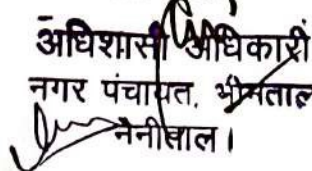 अधिशासी अधिकारी
नगर पंचायत, भीमताल
नैनीताल।